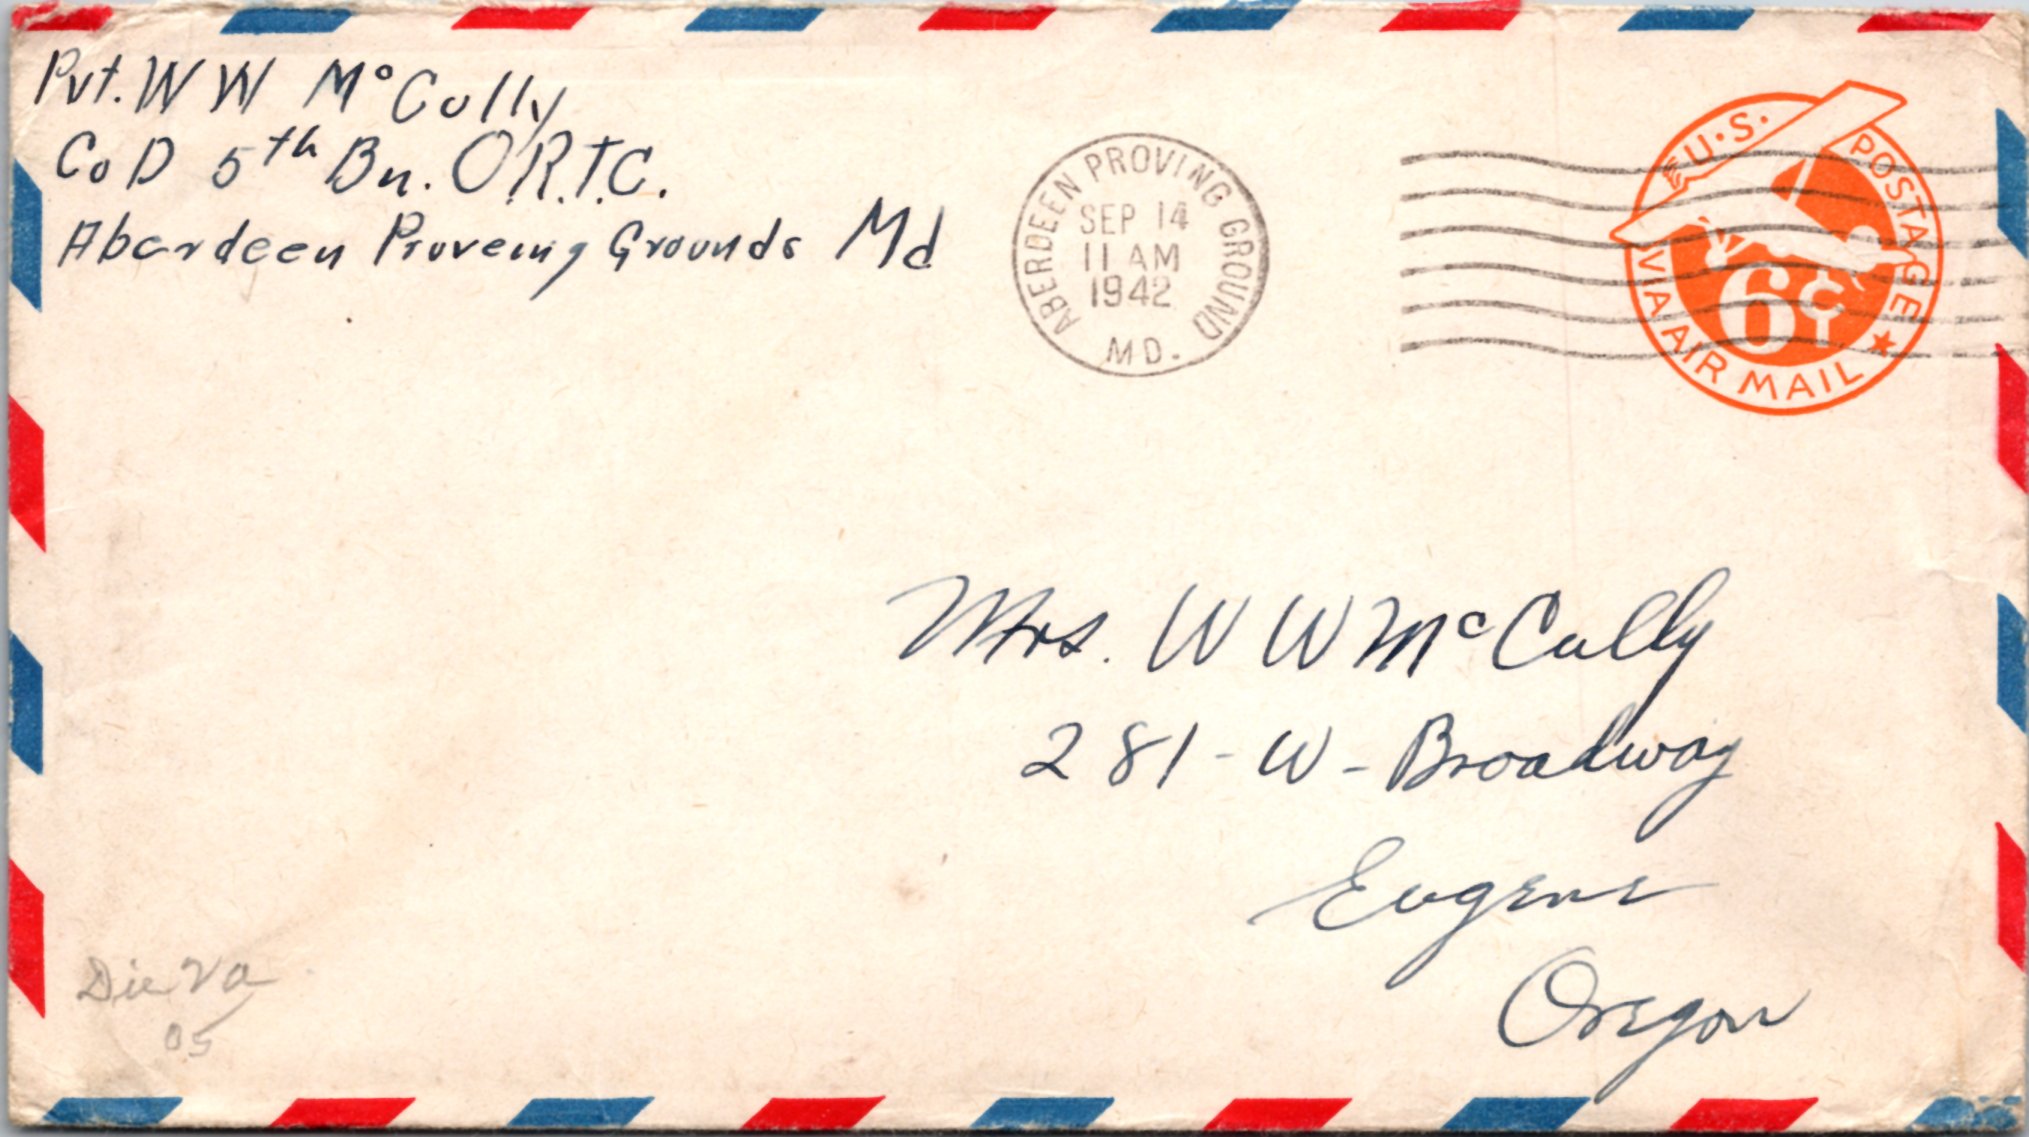 Pvt. W W McCully
Co D 5th Bn. O.R.T.C.
Aberdeen Proveing Grounds Md
ABERDEEN PROVING GROUND
SEP 14
11 AM
1942
MD.
U.S. POSTAGE
6¢
VIA AIR MAIL
Mrs. W W McCully
281 - W - Broadway
Eugene
Oregon
Die 
05